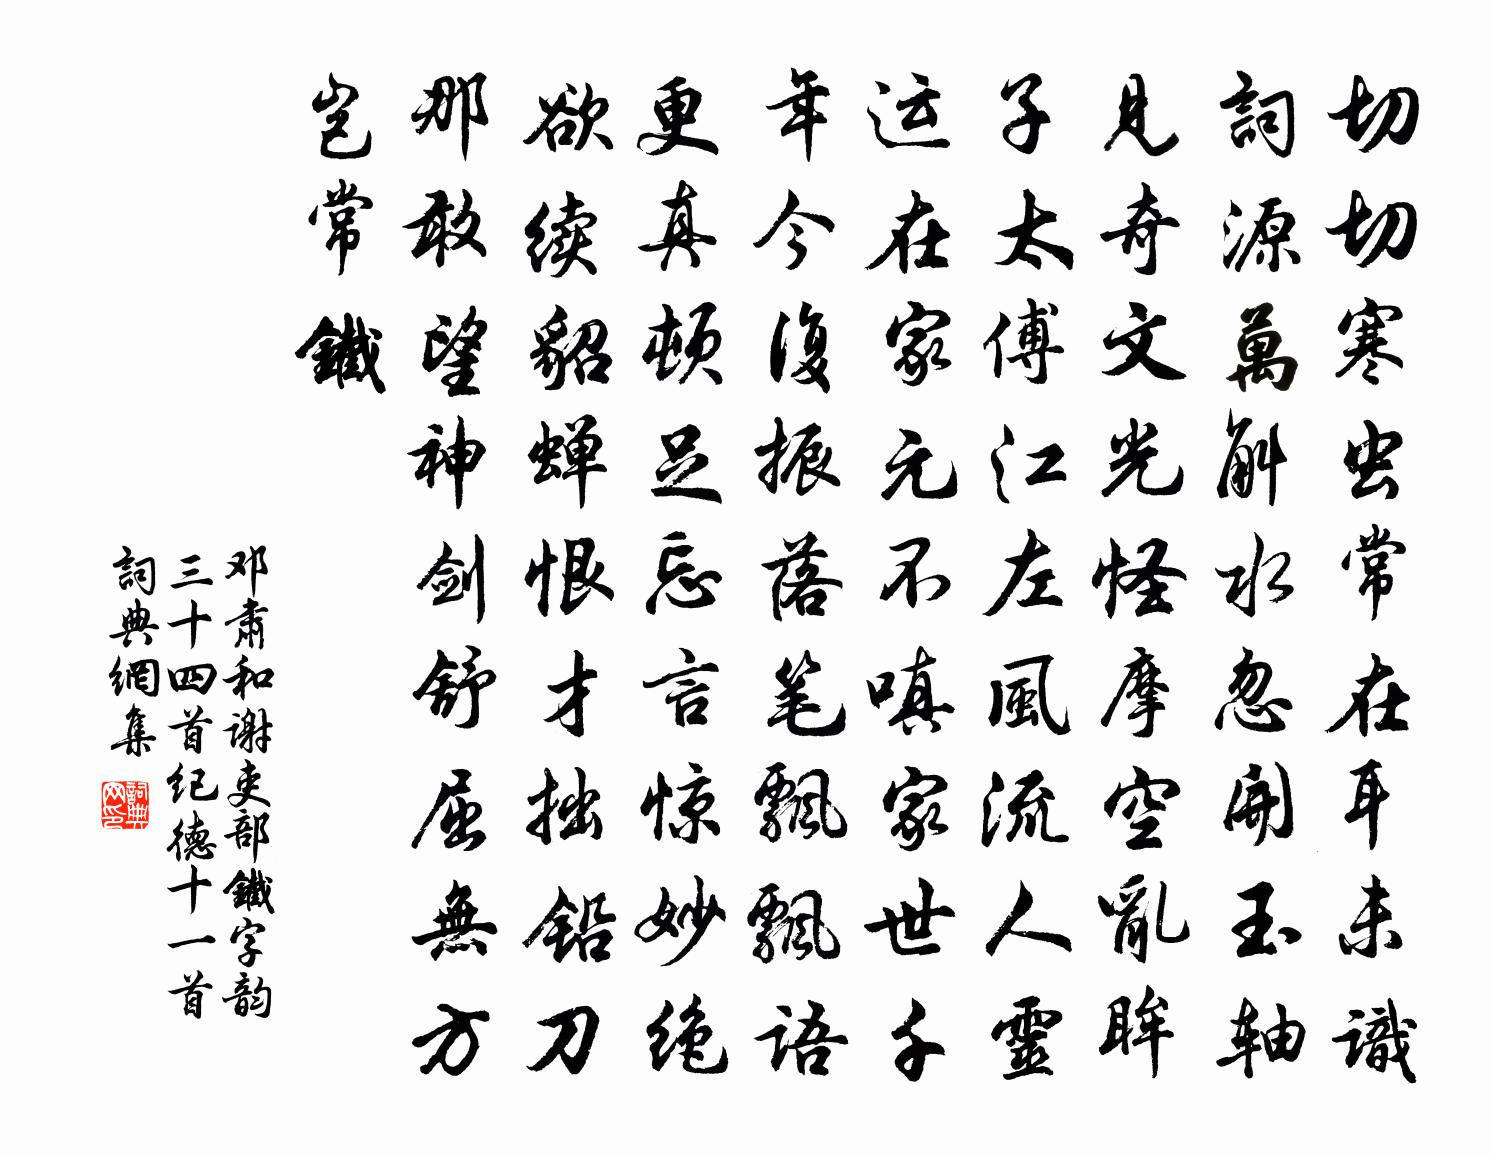 切切寒虫常在耳未識
詞源萬斛水忽開玉軸
見奇文光怪摩空亂眸
子太傅江左風流人靈
运在家元不嗔家世千
年今復振落笔飘飘语
更真顿足忘言惊妙绝
欲续貂蝉恨才拙铅刀
那敢望神剑舒屈無方
岂常鐵
邓肃和谢吏部鐵字韵
三十四首纪德十一首
詞典網集
詞典网印